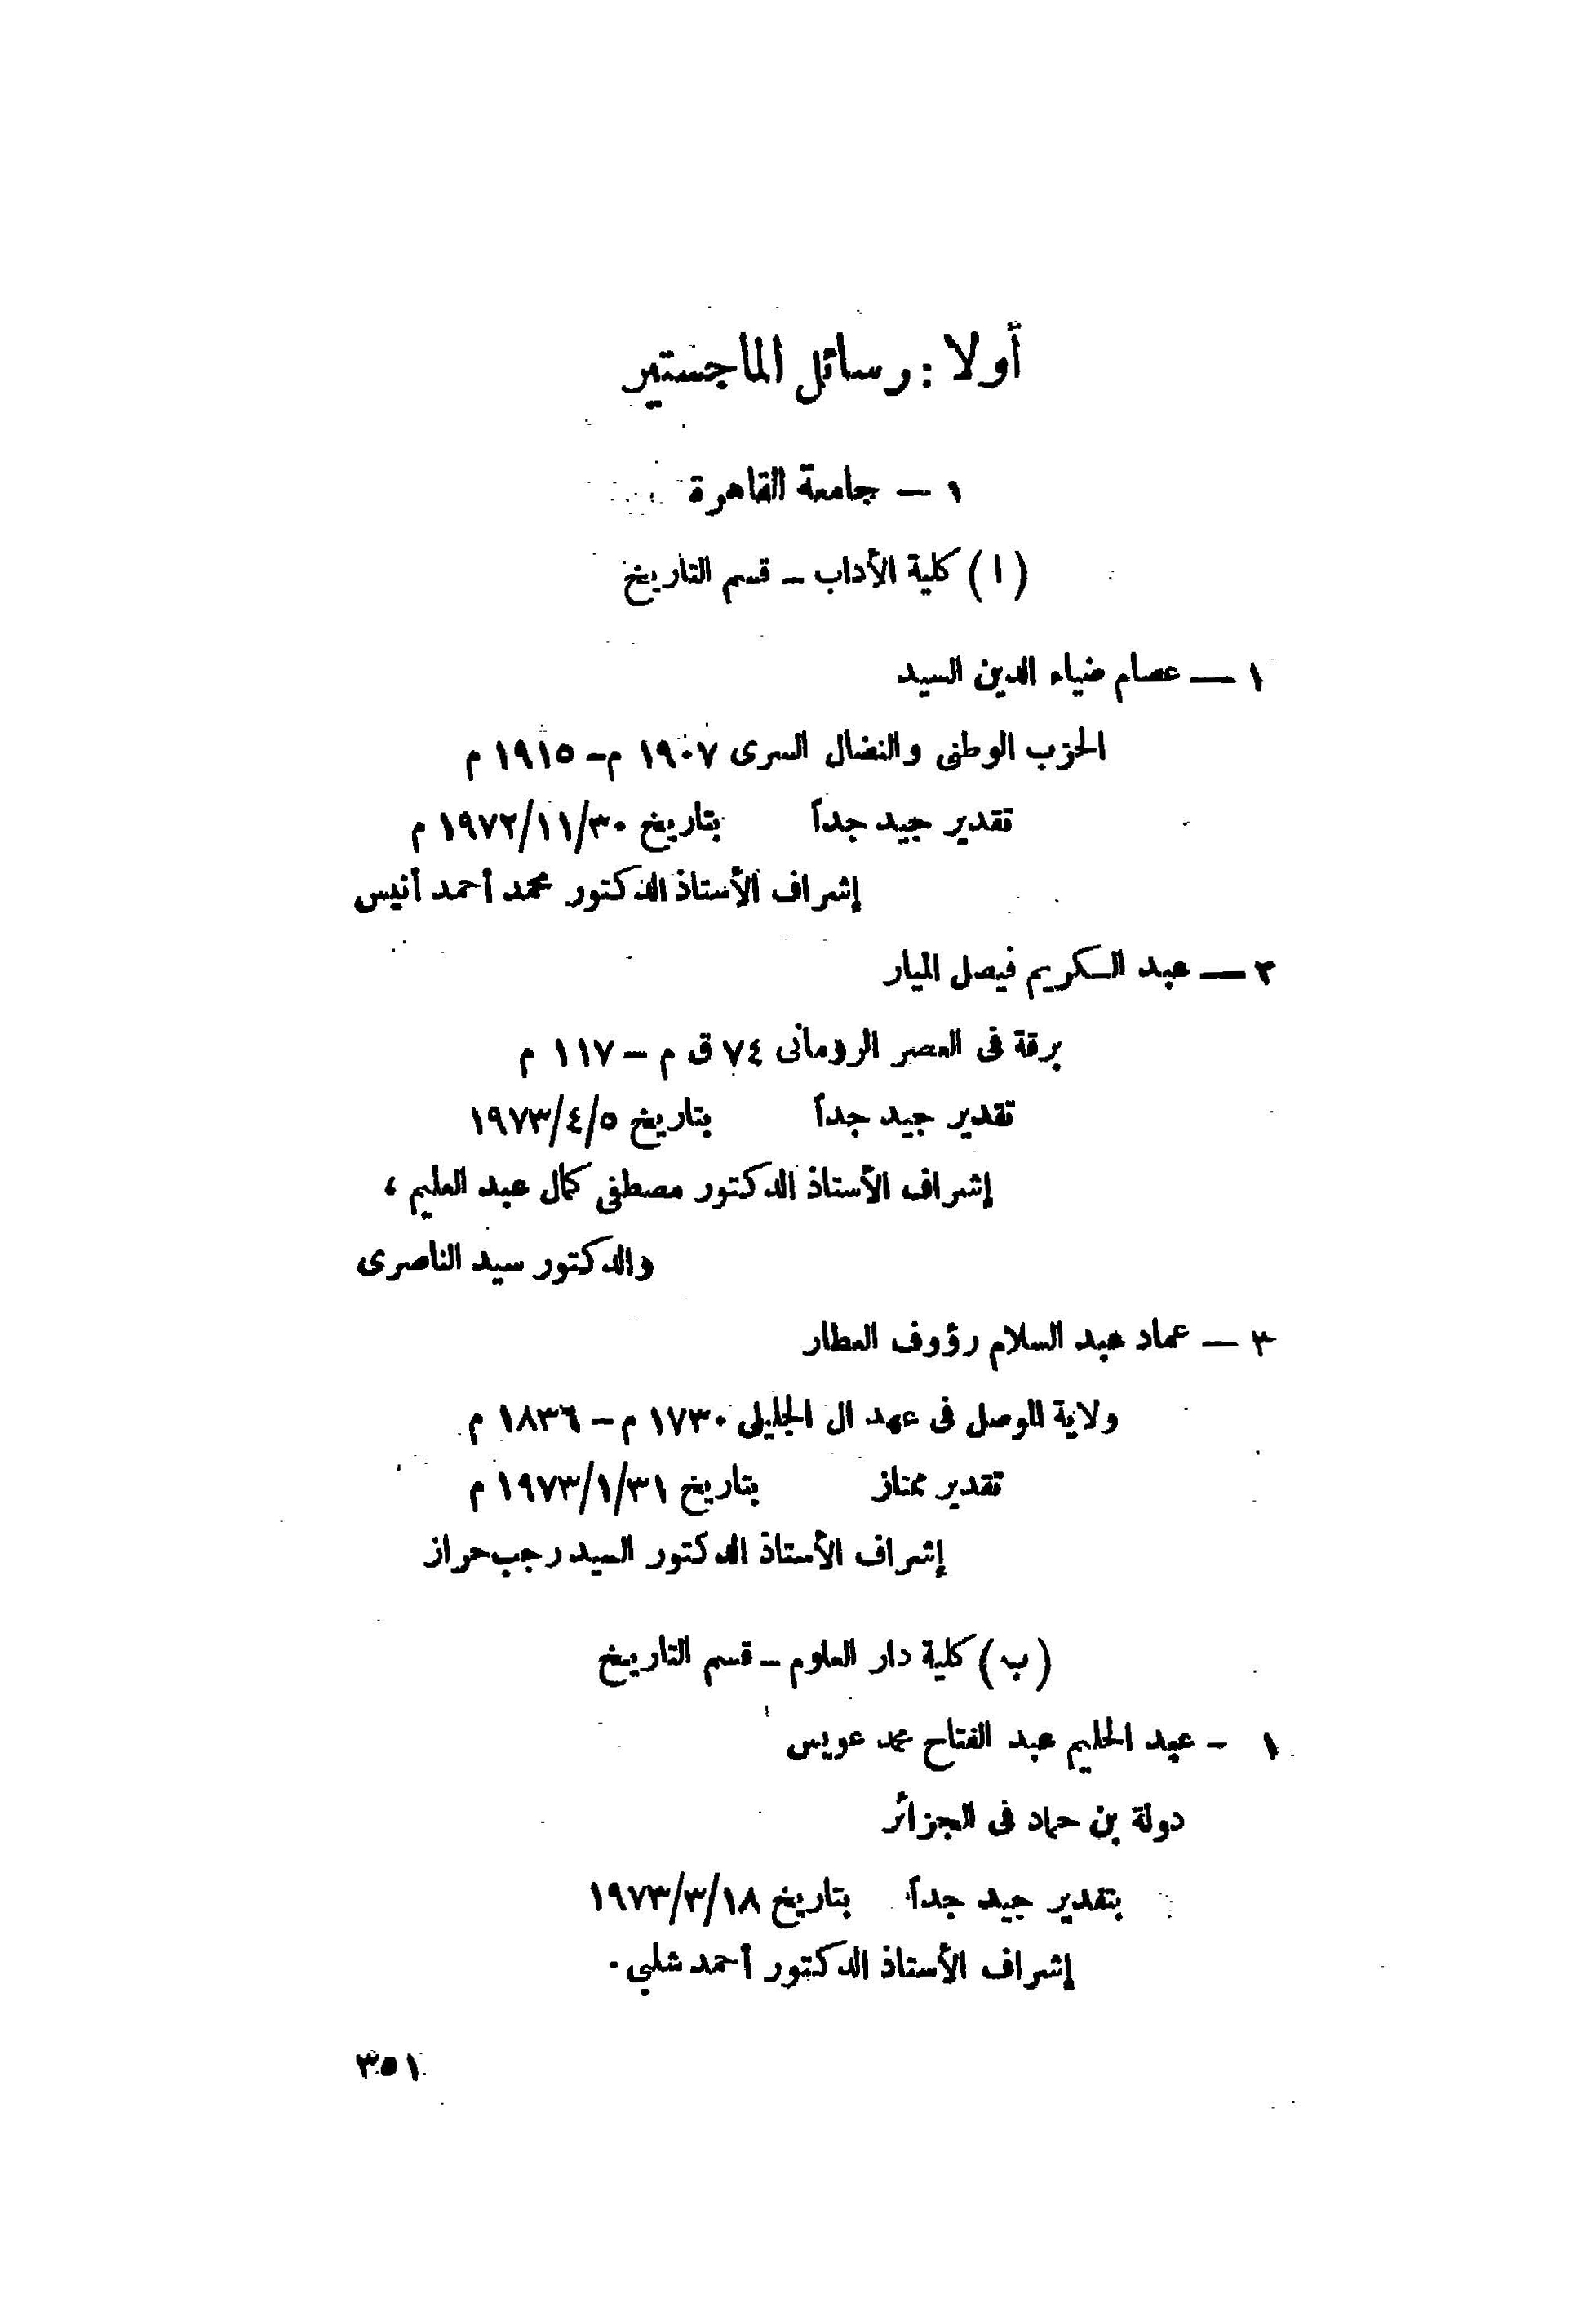 أولا : رسائل الماجستير
١ — جامعة القاهرة
( ا ) كلية الأداب – قسم التاريخ
١ — عصام ضياء الدين السيد
الحزب الوطنى والنضال السرى ١٩٠٧ م – ١٩١٥ م
تقدير جيد جداً بتاريخ ١٩٧٢/١١/٣٠ م
إشراف الأستاذ الدكتور محمد أحمد أنيس
٢ — عبد الكريم فيصل الميار
برقة فى العصر الرومانى ٧٤ ق م – ١١٧ م
تقدير جيد جداً بتاريخ ١٩٧٣/٤/٥
إشراف الأستاذ الدكتور مصطفى كمال عبد العليم ،
والدكتور سيد الناصرى
٣ — عماد عبد السلام رؤوف العطار
ولاية الموصل فى عهد ال الجليلى ١٧٣٠ م – ١٨٣٦ م
تقدير ممتاز بتاريخ ١٩٧٣/١/٣١ م
إشراف الأستاذ الدكتور السيد رجب حراز
( ب ) كلية دار العلوم – قسم التاريخ
١ – عبد الحليم عبد الفتاح محمد عويس
دولة بن حماد فى الجزائر
بتقدير جيد جداً بتاريخ ١٩٧٣/٣/١٨
إشراف الأستاذ الدكتور أحمد شلبي .
٣٥١